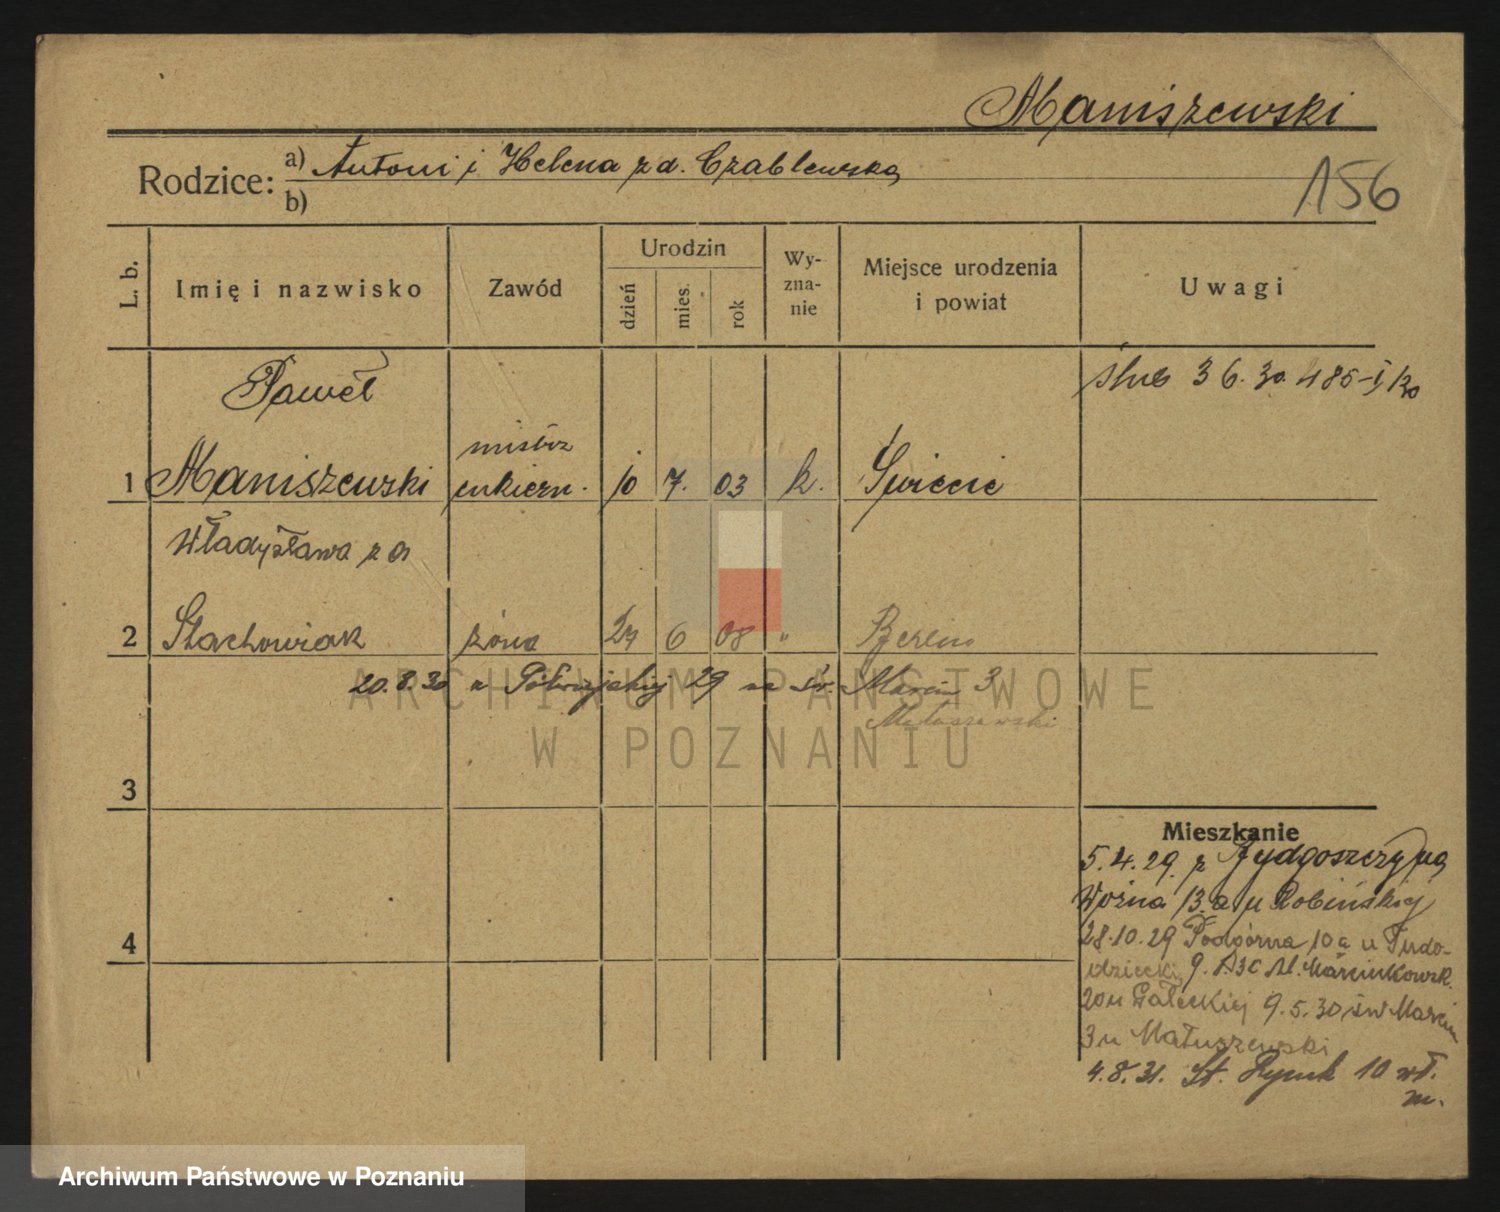 Maniszewski
Rodzice: a) Antoni i Helena z d. Czablewska
b)
156
L. b.
Imię i nazwisko
Zawód
Urodzin
dzień
mies.
rok
Wy-
zna-
nie
Miejsce urodzenia
i powiat
Uwagi
Paweł
ślub 3 6. 30. 485
mistrz
1 Maniszewski cukiern. 10 7. 03 k. Świecie
Władysława z d
2 Stachowiak żona 27 6 08 " Berlin
20.8.30 z 29 na św. Marcin 3
Matuszewski
3
4
Mieszkanie
5.4.29. z Bydgoszczy na
Woźna 13 a u Robińskiej
28.10.29 Podgórna 10 a u
9. Al. Marcinkowsk.
20 u Gałeckiej 9.5.30 św Marcin
3 u Matuszewski
4.8.31. St. Rynek 10 wł.
m.
ARCHIWUM PAŃSTWOWE
W POZNANIU
Archiwum Państwowe w Poznaniu